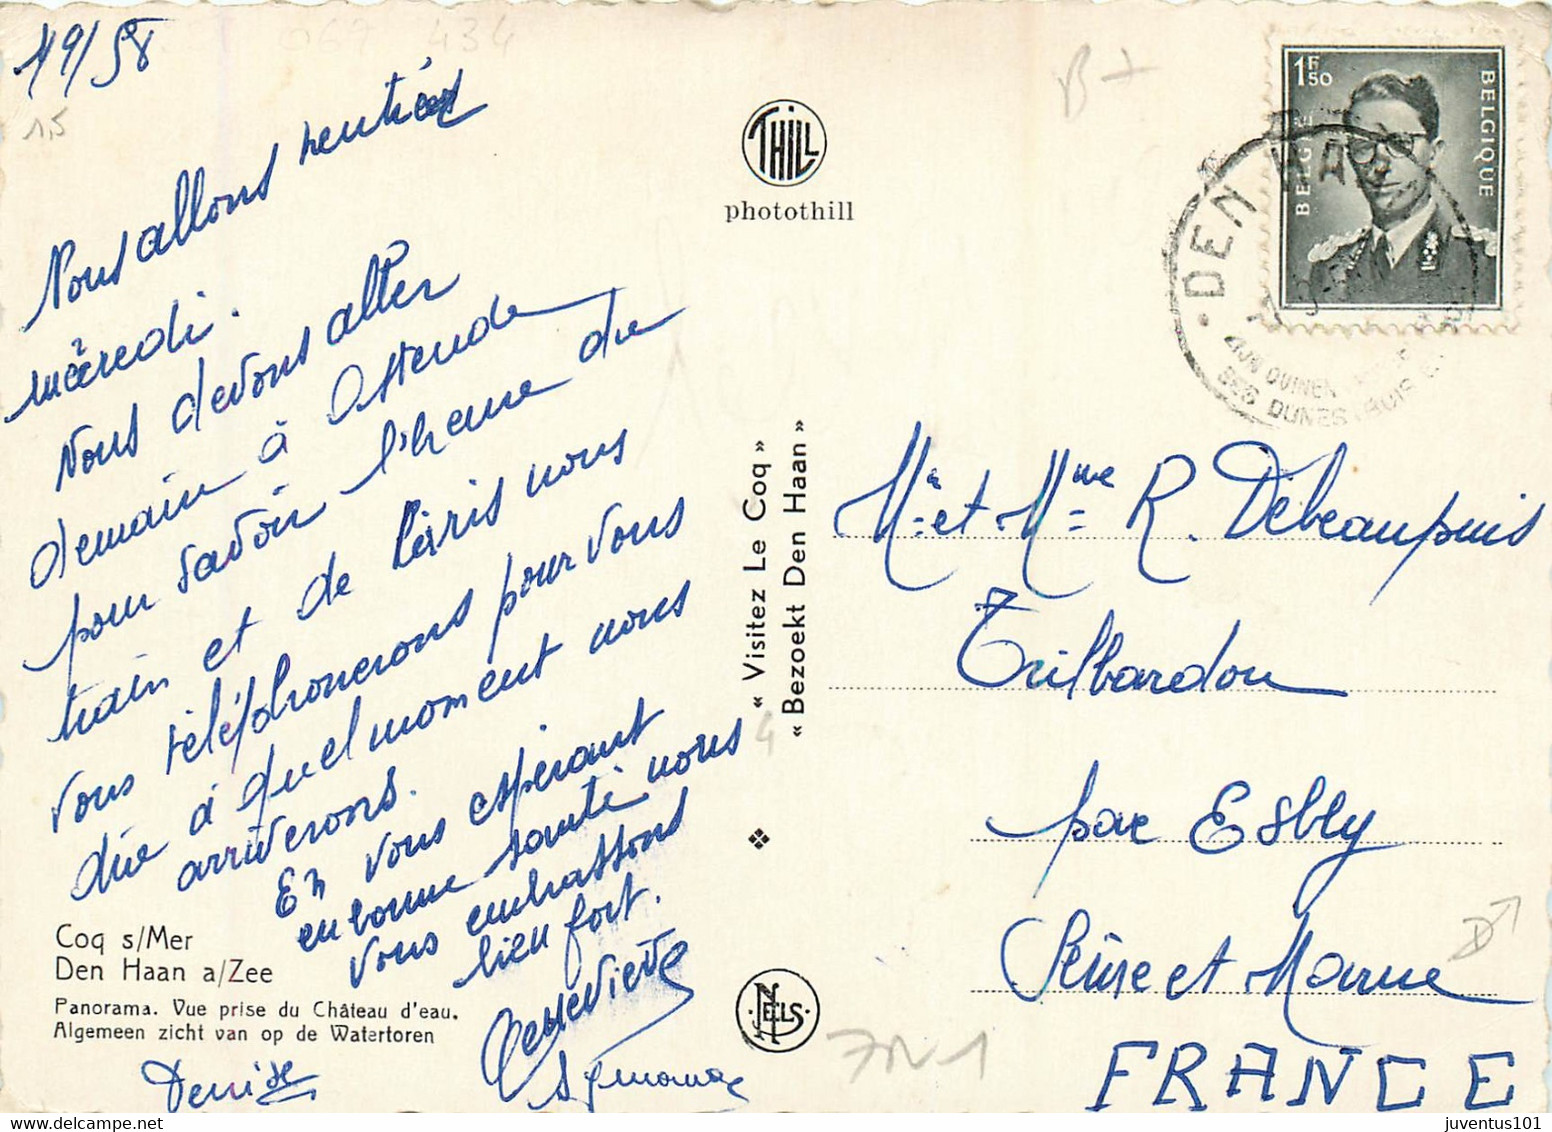 19/58
067 434
15
B+
Nous allons rentrer
mercredi.
Nous devons aller
demain à Ostende
pour savoir l'heure du
train et de Paris nous
vous téléphonerons pour vous
dire à quel moment nous
arriverons.
En vous espérant
en bonne santé nous
vous embrassons
bien fort.
Geneviève
Denise
Coq s/Mer
Den Haan a/Zee
Panorama. Vue prise du Château d'eau.
Algemeen zicht van op de Watertoren
THILL
photothill
« Visitez Le Coq »
« Bezoekt Den Haan »
4
NELS
1F50
BELGIQUE
BELGIE
DEN HAA
SES DUNES
Mr et Mme R. Debeaupuis
Trilbardou
par Esbly
Seine et Marne
FRANCE
juventus101